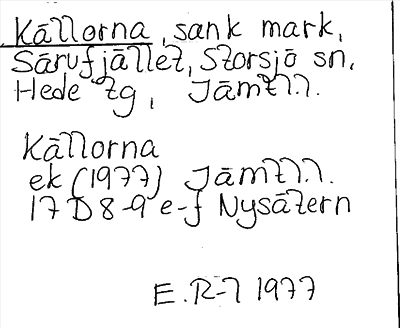 Källorna, sank mark,
Särvfjället, Storsjö sn,
Hede tg, Jämtl.
Källorna
ek (1977) Jämtl.
17D 8-9 e-f Nysätern
E.R-l 1977